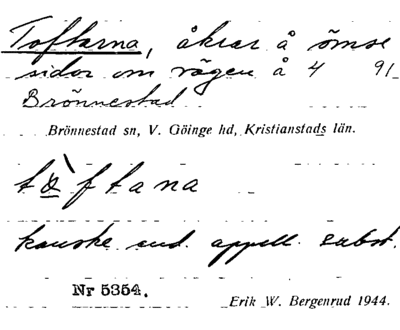 Toftarna, åkrar å ömse
sidor om vägen å 4 91
Brönnestad
Brönnestad sn, V. Göinge hd, Kristianstads län.
tå̀ftana
kanske end. appell. subst.
Nr 5354.
Erik W. Bergenrud 1944.